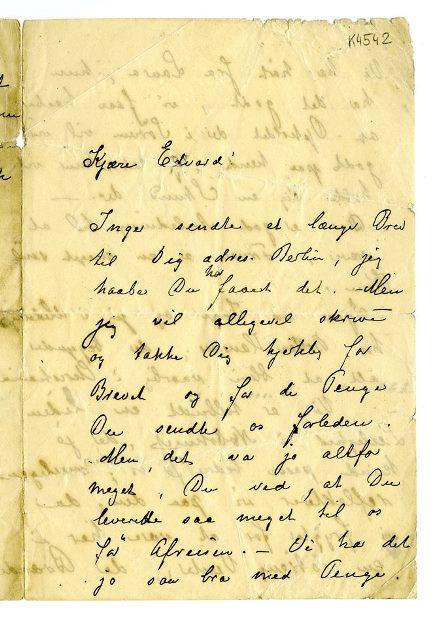 K4542
Kjære Edvard!
Inger sendte et længe Brev
til Dig adres. Berlin, jeg
haabe Du har faaet det. – Men
jeg vil allegevel skrive
og takke Dig hjertelig for
Brevet og for de Penge
Du sendte os forleden.
Men, det va jo altfor
meget, Du ved, at Du
leverte saa meget til os
før Afreisen. – Vi ha det
jo saa bra med Penge.